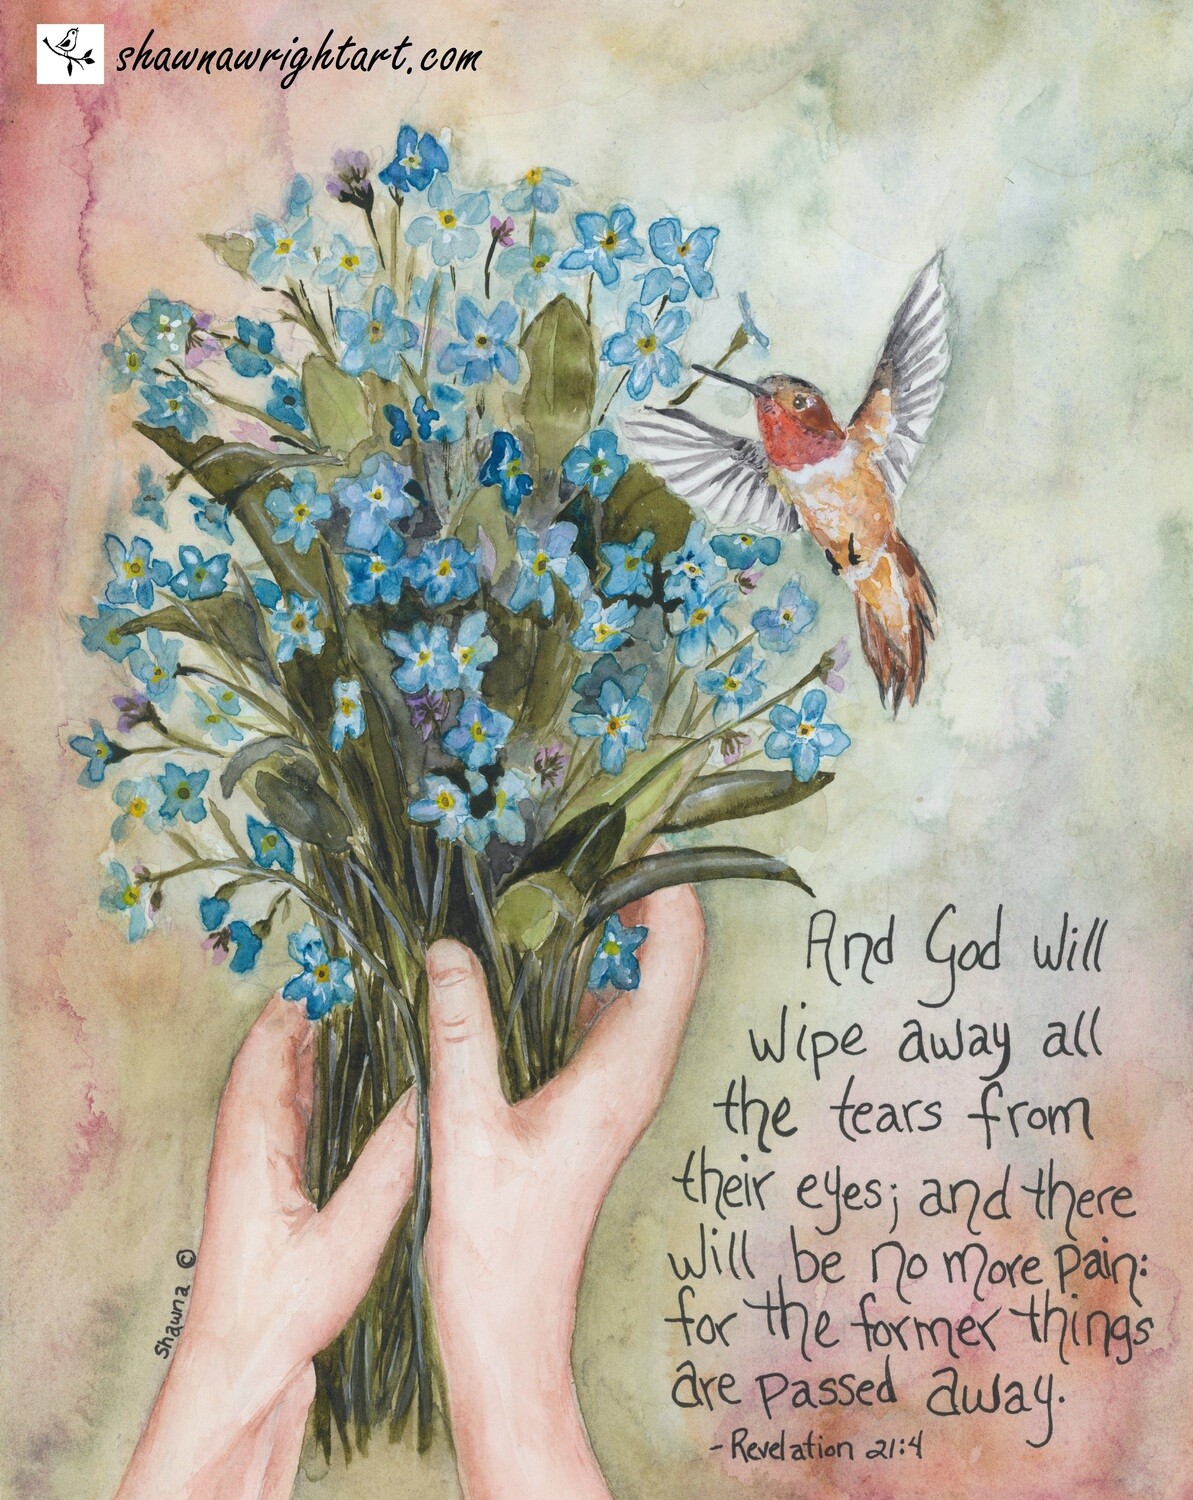 shawnawrightart.com
And God will
wipe away all
the tears from
their eyes; and there
will be no more pain:
for the former things
are passed away.
- Revelation 21:4
Shawna ©